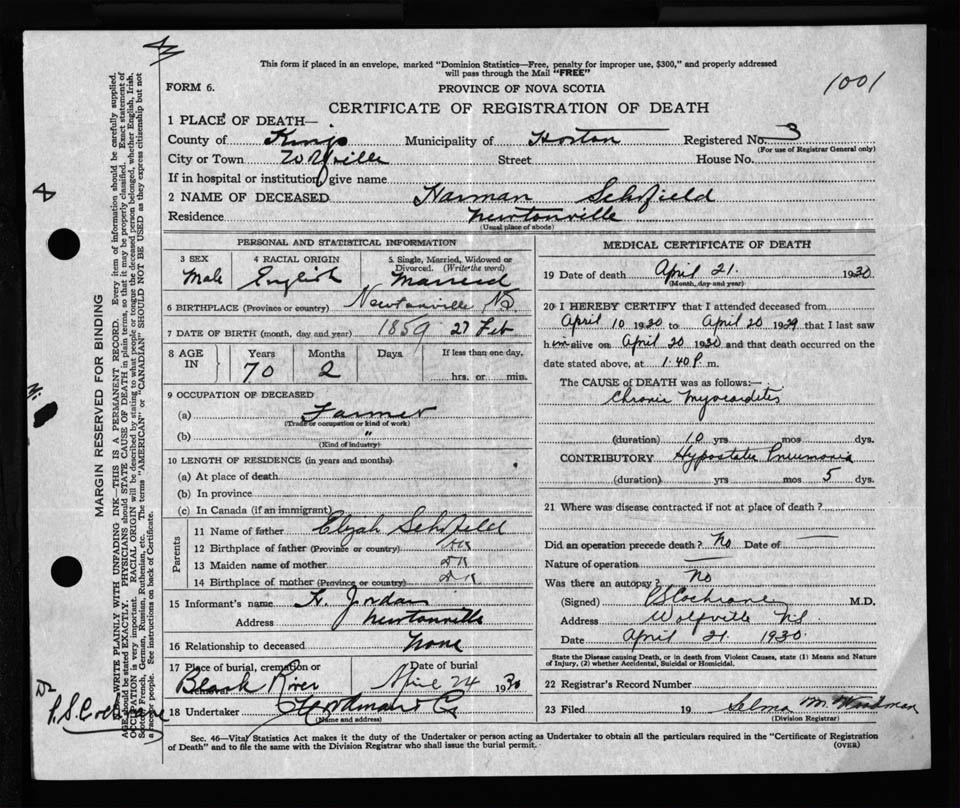 This form if placed in an envelope, marked "Dominion Statistics—Free, penalty for improper use, $300," and properly addressed
will pass through the Mail "FREE"
1001
FORM 6.
PROVINCE OF NOVA SCOTIA
CERTIFICATE OF REGISTRATION OF DEATH
1 PLACE OF DEATH—
County of Kings Municipality of Horton Registered No. 3
(For use of Registrar General only)
City or Town Wolfville Street House No.
If in hospital or institution, give name
2 NAME OF DECEASED Harman Schofield
Residence Newtonville
(Usual place of abode)
PERSONAL AND STATISTICAL INFORMATION
3 SEX 4 RACIAL ORIGIN 5 Single, Married, Widowed or
Divorced. (Write the word)
Male English Married
6 BIRTHPLACE (Province or country) Newtonville NS
7 DATE OF BIRTH (month, day and year) 1859 27 Feb
8 AGE IN Years Months Days If less than one day.
70 2 hrs. or min.
9 OCCUPATION OF DECEASED
(a) Farmer
(Trade or occupation or kind of work)
(b) "
(Kind of industry)
10 LENGTH OF RESIDENCE (in years and months)
(a) At place of death
(b) In province
(c) In Canada (if an immigrant)
Parents
11 Name of father Elijah Schofield
12 Birthplace of father (Province or country) DK
13 Maiden name of mother DK
14 Birthplace of mother (Province or country) DK
15 Informant's name H. Jordan
Address Newtonville
16 Relationship to deceased None
17 Place of burial, cremation or Date of burial
Black River April 24 1930
18 Undertaker
(Name and address)
MEDICAL CERTIFICATE OF DEATH
19 Date of death April 21. 1930
(Month, day and year)
20 I HEREBY CERTIFY that I attended deceased from
April 10 1930 to April 20 1929 that I last saw
him alive on April 20 1930 and that death occurred on the
date stated above, at 1.40 P. m.
The CAUSE of DEATH was as follows:—
Chronic Myocarditis
(duration) 10 yrs mos dys.
CONTRIBUTORY Hypostatic Pneumonia
(duration) yrs mos 5 dys.
21 Where was disease contracted if not at place of death?
Did an operation precede death? No Date of —
Nature of operation —
Was there an autopsy? No
(Signed) P.S. Cochrane M.D.
Address Wolfville NS
Date April 21 1930
State the Disease causing Death, or in death from Violent Causes, state (1) Means and Nature
of Injury, (2) whether Accidental, Suicidal or Homicidal.
22 Registrar's Record Number
23 Filed 19 Selma M.
(Division Registrar)
Sec. 46—Vital Statistics Act makes it the duty of the Undertaker or person acting as Undertaker to obtain all the particulars required in the "Certificate of Registration
of Death" and to file the same with the Division Registrar who shall issue the burial permit.
(OVER)
MARGIN RESERVED FOR BINDING
WRITE PLAINLY WITH UNFADING INK—THIS IS A PERMANENT RECORD. Every item of information should be carefully supplied.
AGE should be stated EXACTLY. PHYSICIANS should STATE CAUSE OF DEATH in plain terms, so that it may be properly classified. Exact statement of
OCCUPATION is very important. RACIAL ORIGIN will be described by stating to what people or tongue the deceased person belonged, whether English, Irish,
Scotch, French, German, Russian, Ruthenian, etc. The terms "AMERICAN" or "CANADIAN" SHOULD NOT BE USED as they express citizenship but not
a race or people. See instructions on back of Certificate.
Dr
P.S. Cochrane